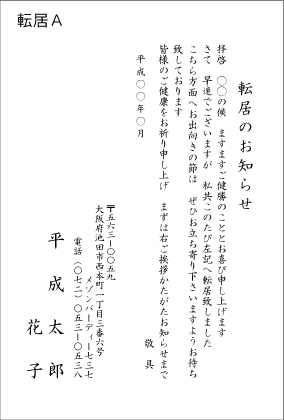 転居A
転居のお知らせ
拝啓　〇〇の候　ますますご健勝のこととお喜び申し上げます
さて　早速でございますが　私共このたび左記へ転居致しました
こちら方面へお出向きの節は　ぜひお立ち寄り下さいますようお待ち
致しております
皆様のご健康をお祈り申し上げ　まずは右ご挨拶かたがたお知らせまで
敬具
平成〇〇年〇月
〒五六三ー〇〇五九
大阪府池田市西本町一丁目三番六号
メゾンバーディー七三七
電話（〇七二）〇五三ー〇五三八
平成太郎
花子